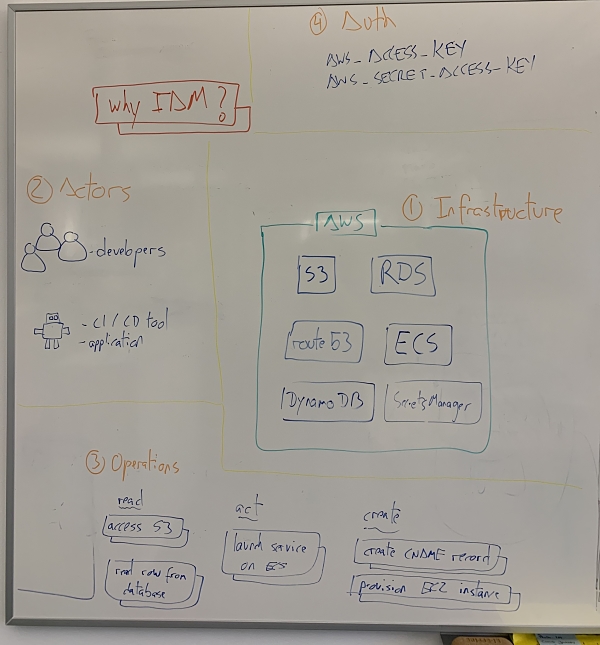 ④ Auth
AWS_ACCESS_KEY
AWS_SECRET_ACCESS_KEY
Why IDM?
② Actors
- developers
- CI/CD tool
- application
① Infrastructure
AWS
S3
RDS
route 53
ECS
DynamoDB
Secrets Manager
③ Operations
read
access S3
read row from
database
act
launch service
on ECS
create
create CNAME record
provision EC2 instance